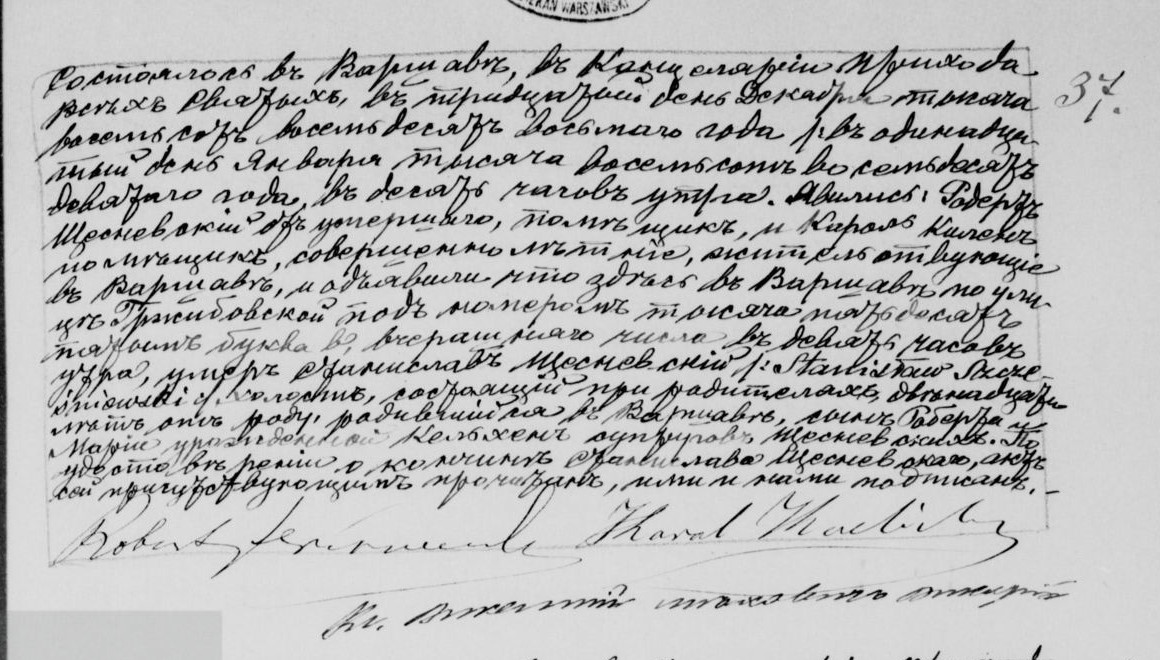 DZIEKAN WARSZAWSKI
37.
Состоялось въ Варшавѣ, въ Канцеляріи Прихода
всѣхъ Святыхъ, въ тридцатый день Декабря тысяча
восемьсотъ восемьдесятъ восьмаго года /: въ одинадца-
тый день Января тысяча восемьсотъ восемьдесятъ
девятаго года, въ десять часовъ утра. Явились: Робертъ
Щесневскій отъ умершаго, помѣщикъ, и Кароль
помѣщикъ, совершеннолѣтніе, жительствующіе
въ Варшавѣ, и объявили что здѣсь въ Варшавѣ по ули-
цѣ Гржибовской подъ номеромъ тысяча пятьдесятъ
пятымъ буква в, вчерашняго числа въ девять часовъ
утра, умеръ Станиславъ Щесневскій /: Stanisław Szcze-
śniewski :/ холостъ, состоящій при родителяхъ, двѣнадцати
лѣтъ отъ роду, родившійся въ Варшавѣ, сынъ Роберта и
Маріи урожденной Кельхенъ супруговъ Щесневскихъ. По
удостовѣреніи о кончинѣ Станислава Щесневскаго, актъ
сей присутствующимъ прочитанъ, ими и нами подписанъ.
Robert
Karol
Кс.